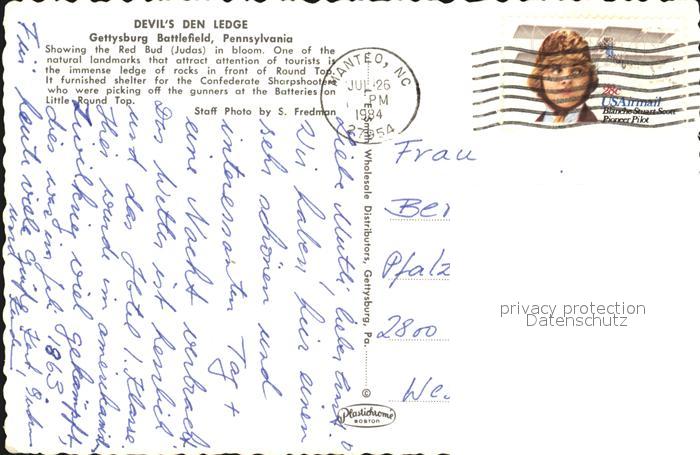 DEVIL'S DEN LEDGE
Gettysburg Battlefield, Pennsylvania
Showing the Red Bud (Judas) in bloom. One of the
natural landmarks that attract attention of tourists is
the immense ledge of rocks in front of Round Top.
It furnished shelter for the Confederate Sharpshooters
who were picking off the gunners at the Batteries on
Little Round Top.
Staff Photo by S. Fredman
MANTEO, NC
JUL 26
PM
1984
27954
28c
USAirmail
Blanche Stuart Scott
Pioneer Pilot
Liebe Mutti, lieber Ernst!
Wir haben hier einen
sehr schönen und
interessanten Tag +
eine Nacht verbracht.
Das Wetter ist herrlich
und das Hotel 1. Klasse.
Hier wurde im amerikanisch.
Zivilkrieg viel gekämpft,
das war im Juli 1863.
Für heute viele
und Grüße
Wholesale Distributors, Gettysburg, Pa.
©
Plastichrome
BOSTON
Frau
Ber
Pfalz
2800
We.
privacy protection
Datenschutz